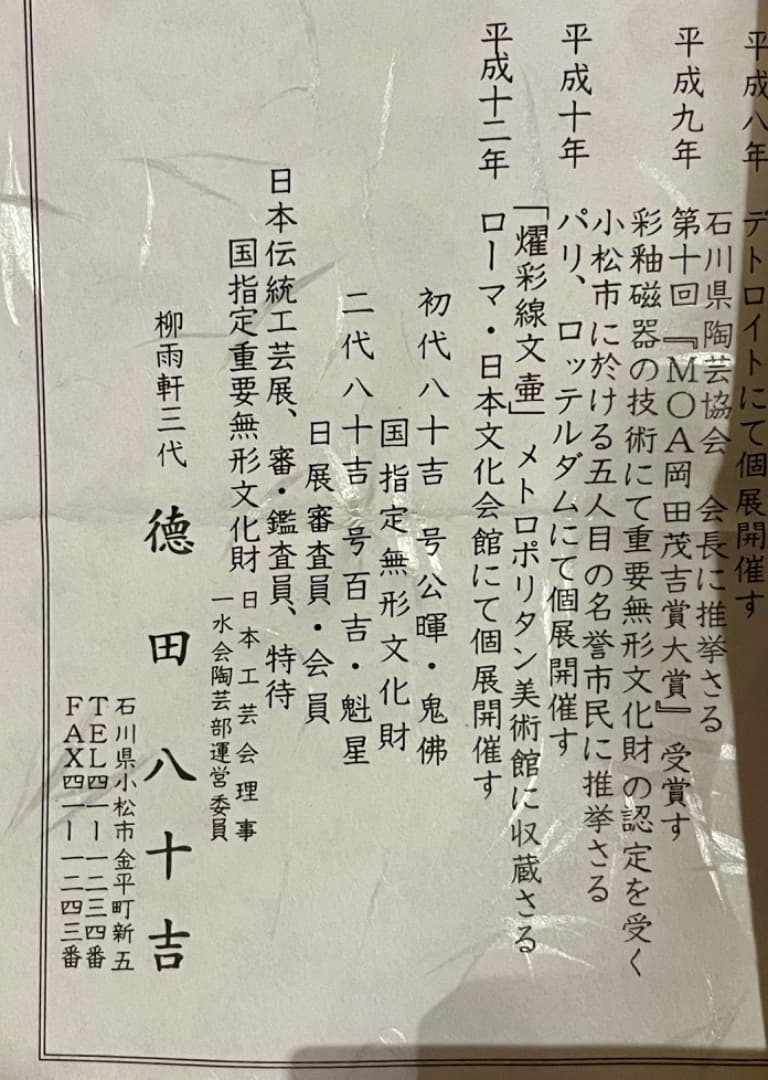 平成八年 デトロイトにて個展開催す
石川県陶芸協会 会長に推挙さる
平成九年 第十回『MOA岡田茂吉賞大賞』受賞す
彩釉磁器の技術にて重要無形文化財の認定を受く
小松市に於ける五人目の名誉市民に推挙さる
平成十年 パリ、ロッテルダムにて個展開催す
「燿彩線文壷」メトロポリタン美術館に収蔵さる
平成十二年 ローマ・日本文化会館にて個展開催す
初代八十吉 号公暉・鬼佛
国指定無形文化財
二代八十吉 号百吉・魁星
日展審査員・会員
日本伝統工芸展、審・鑑査員、特待
国指定重要無形文化財 日本工芸会理事
一水会陶芸部運営委員
柳雨軒三代 徳田八十吉
石川県小松市金平町新五
TEL四一ー一二三四番
FAX四一ー一二四三番